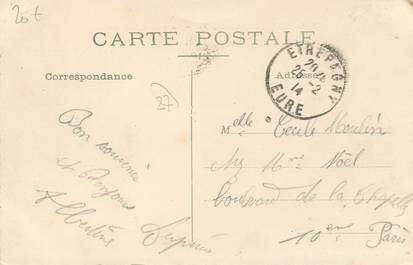 20f
CARTE POSTALE
Correspondance
Adresse
ETREPAGNY
20
25-2
14
EURE
27
Bon souvenir
et Bonjour
Albertine
Dupuis
Melle Cécile Moulin
chez Mme Noël
Boulevard de la Chapelle
10em Paris